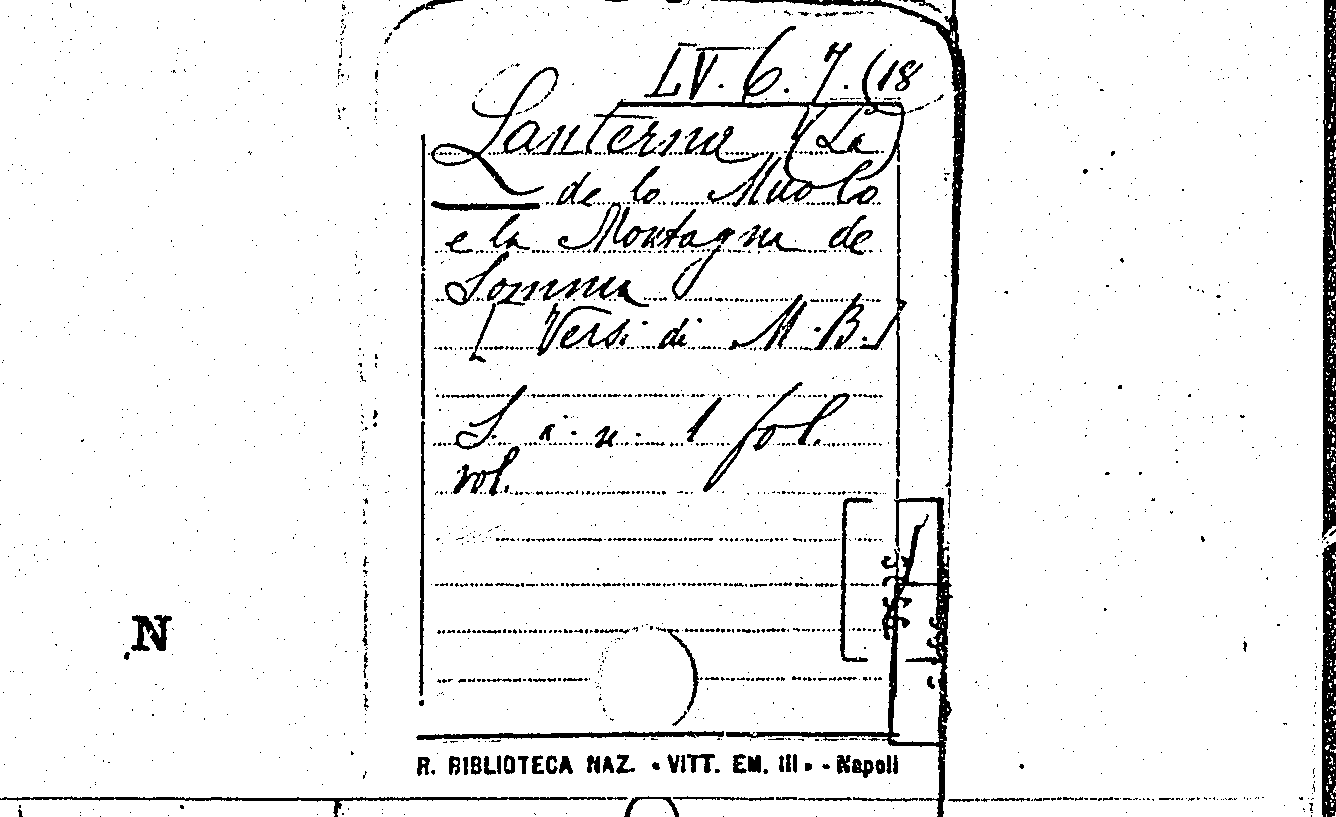 LV. 6. 7. (18
Lanterna (La)
de lo Muolo
e la Montagna de
Somma
[Versi di M. B.]
S. a. n. 1 fol.
vol.
N
R. BIBLIOTECA NAZ. « VITT. EM. III » - Napoli